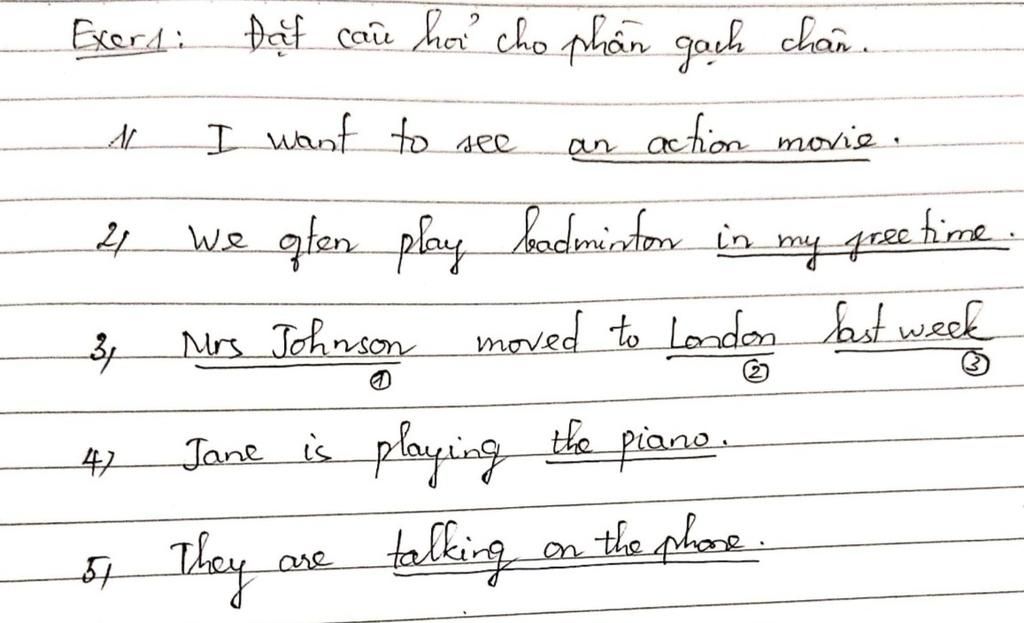 Exer1: Đặt câu hỏi cho phần gạch chân.
1/ I want to see an action movie.
2/ We often play badminton in my free time.
3/ Mrs Johnson moved to London last week
① ② ③
4/ Jane is playing the piano.
5/ They are talking on the phone.